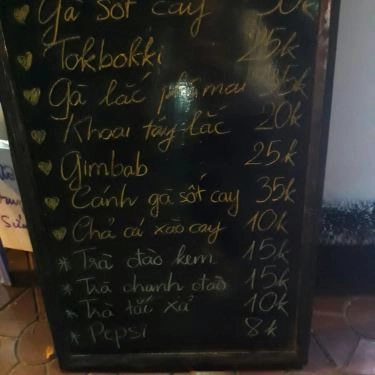 Gà sốt cay
Tokbokki 25k
Gà lắc phô mai 35k
Khoai tây lắc 20k
Gimbab 25k
Cánh gà sốt cay 35k
Chả cá xào cay 10k
Trà đào kem 15k
Trà chanh đào 15k
Trà tắc xả 10k
Pepsi 8k